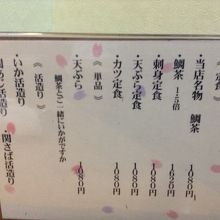 ・当店名物 鯛茶 1080円
・鯛茶 1.5倍 1620円
・刺身定食 1080円
・天ぷら定食 1080円
・カツ定食 1080円
《 単品 》
・天ぷら 1080円
鯛茶とご一緒にいかがですか
《 活造り 》
・いか活造り ・関さば活造り